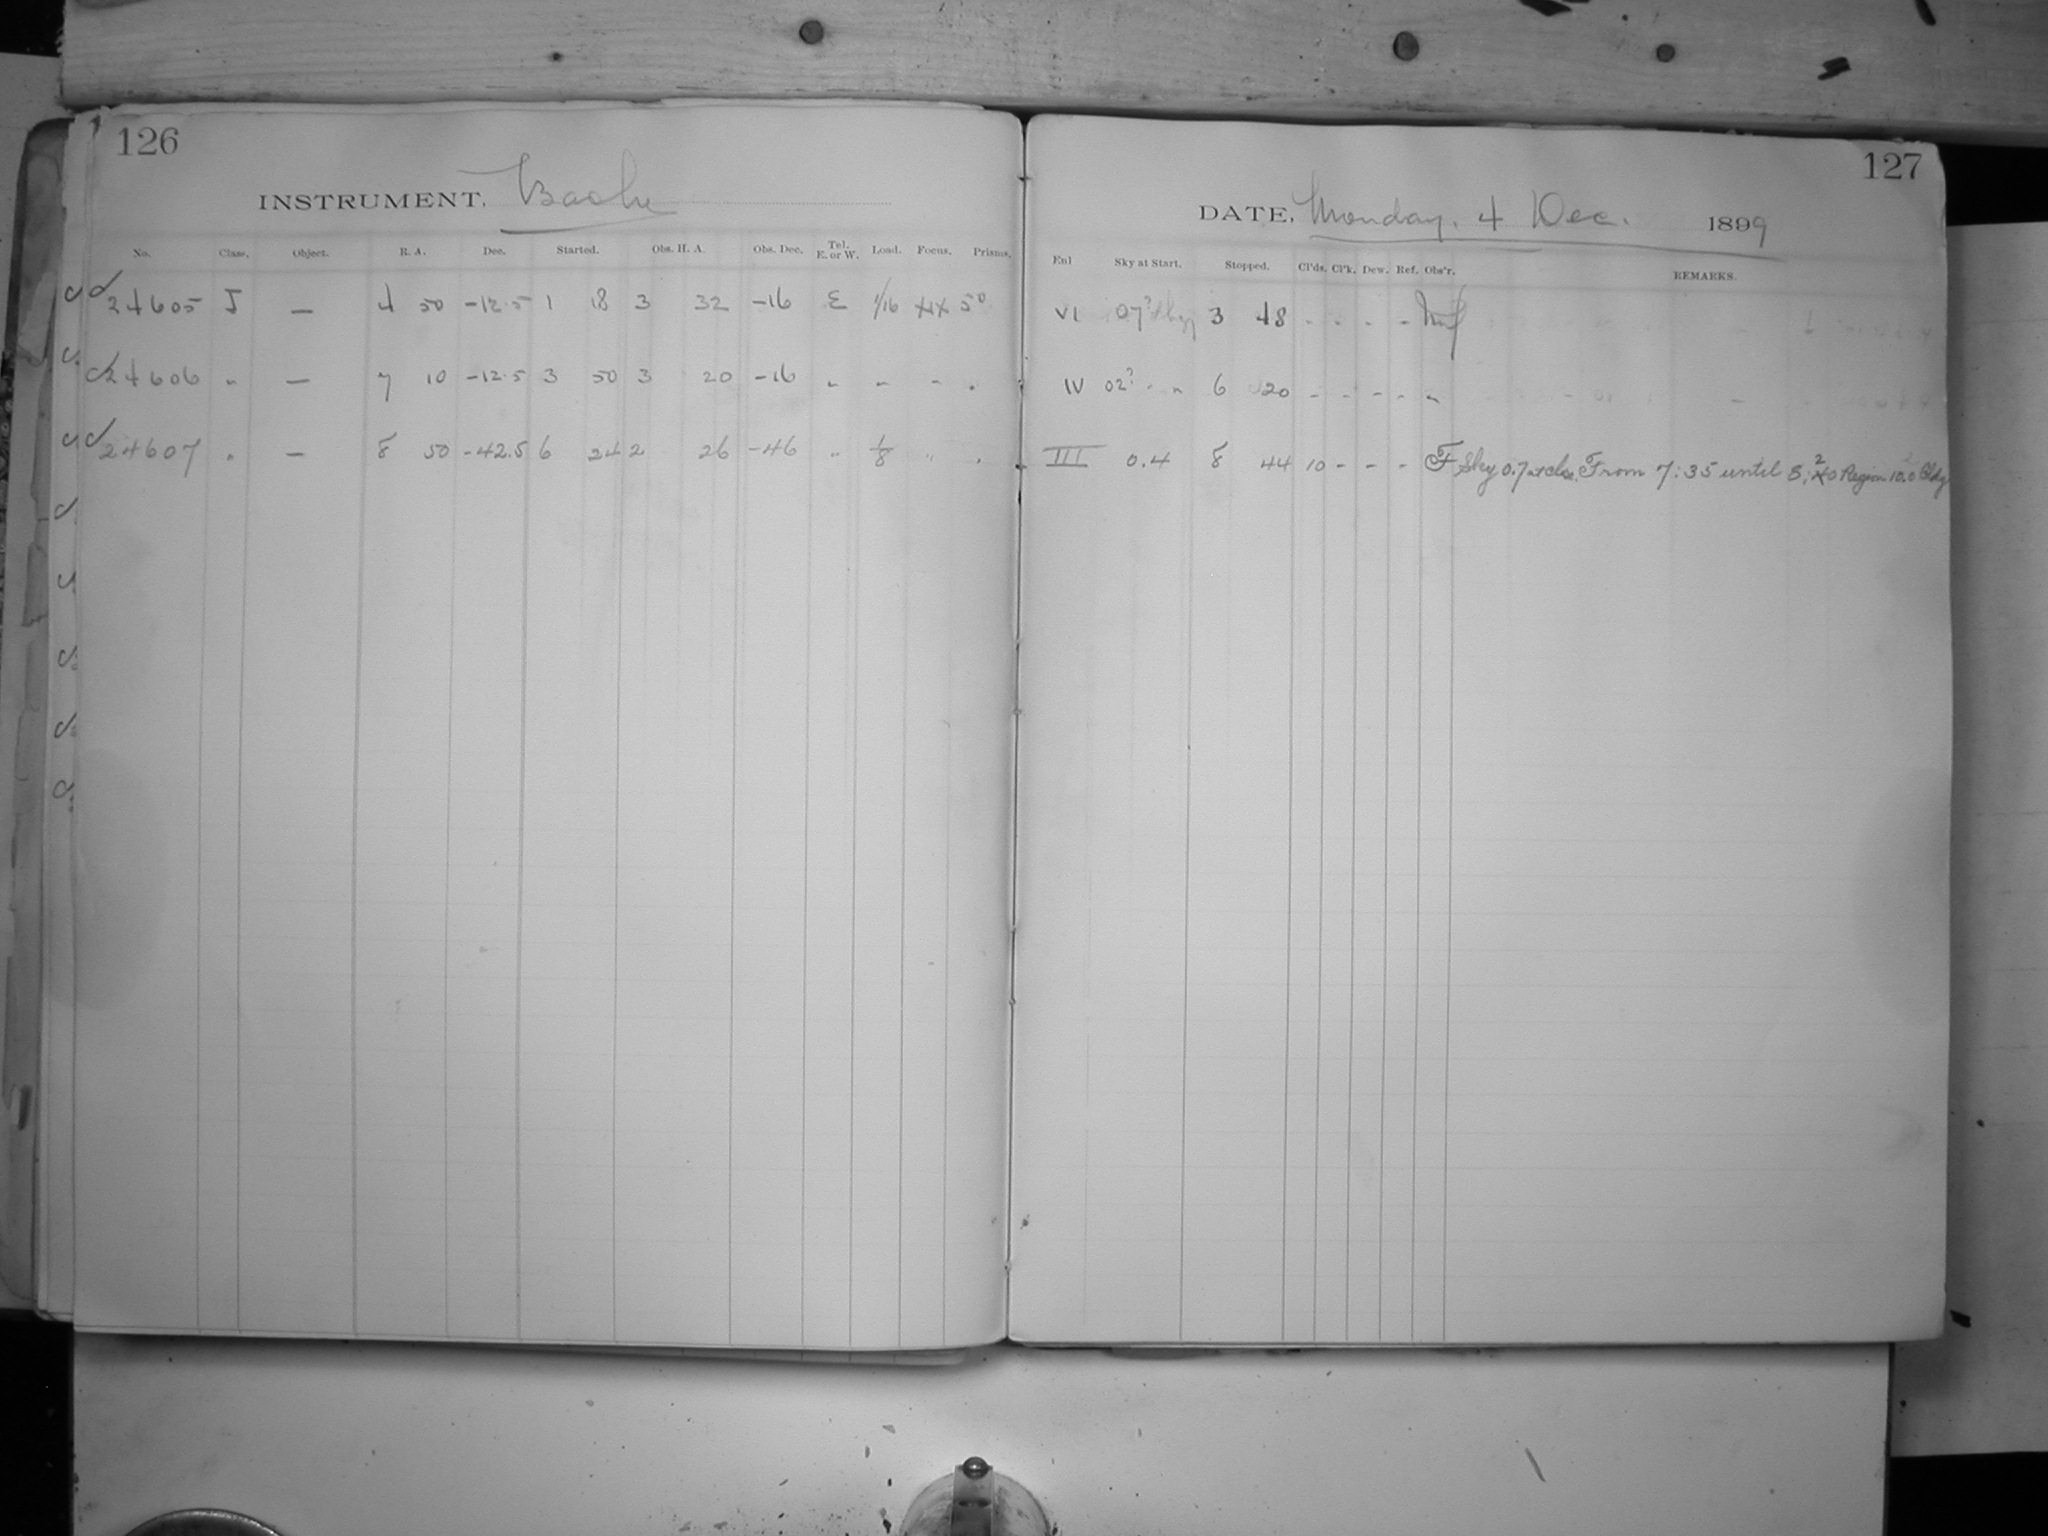 126
INSTRUMENT. Bache
No. Class. Object. R. A. Dec. Started. Obs. H. A. Obs. Dec. Tel. E. or W. Load. Focus. Prisms.
24605 J — 4 50 -12.5 1 18 3 32 -16 E 1/16 50
24606 " — 7 10 -12.5 3 50 3 20 -16 " " " "
24607 " — 8 50 -42.5 6 24 2 26 -46 " 1/8 " "
127
DATE, Monday. 4 Dec. 1899
Enl Sky at Start. Stopped. Cl'ds. Cl'k. Dew. Ref. Obs'r. REMARKS.
VI 07? 3 48 - - - -
IV 02? " " 6 20 - - - - "
III 0.4 8 44 10 - - - F Sky 0.7 at close. From 7:35 until 8:20 Region 10.0 Cldy